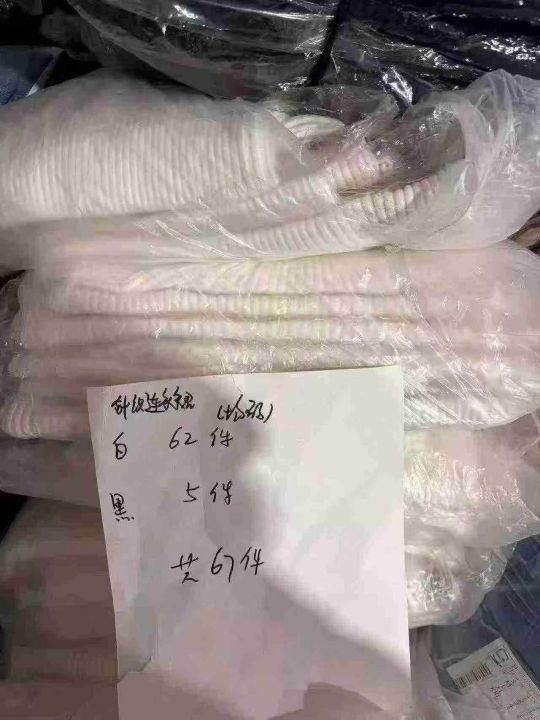 针织连衣裙 (均码)
白 62 件
黑 5 件
共 67 件